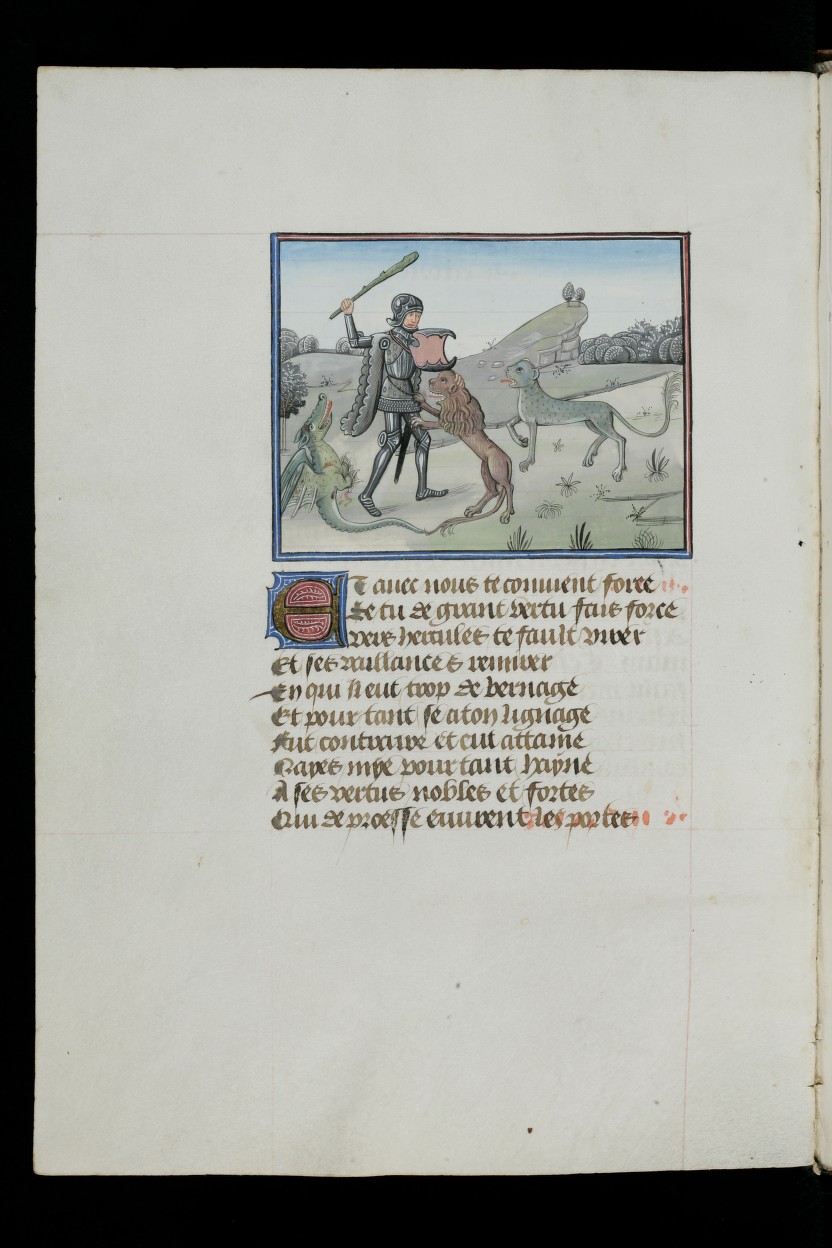 Et auec nous te conuient force
Se tu de grant vertu fais force
vers hercules te fault virer
Et ses vaillances remirer
En qui il eut trop de bernage
Et pour tant se a ton lignage
Fut contraire et eut attaine
Nayes mye pour tant hayne
A ses vertus nobles et fortes
Qui de proesse euurent les portes